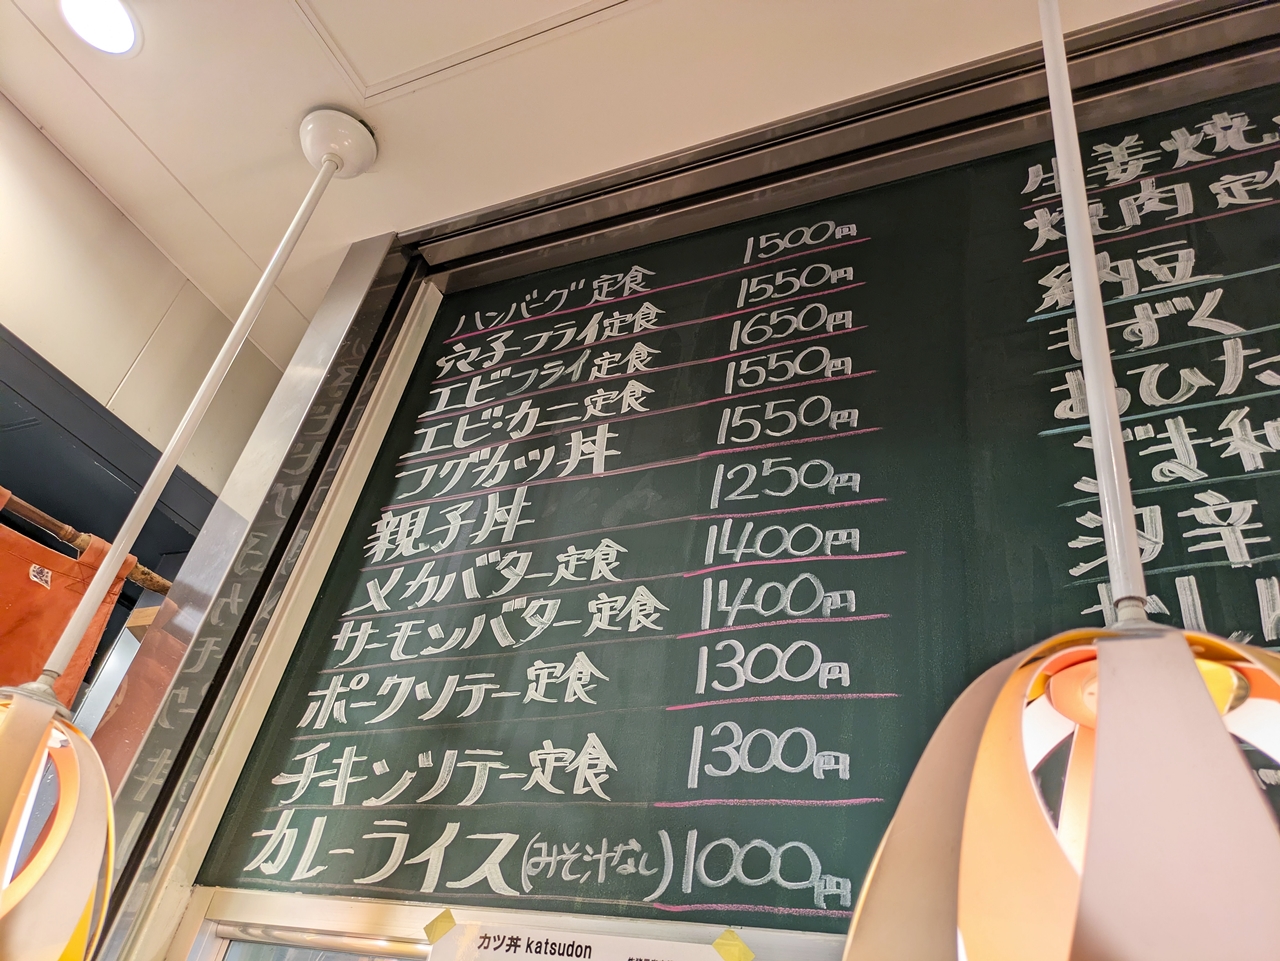 ハンバーグ定食 1500円
穴子フライ定食 1550円
エビフライ定食 1650円
エビ・カニ定食 1550円
フグカツ丼 1550円
親子丼 1250円
メカバター定食 1400円
サーモンバター定食 1400円
ポークソテー定食 1300円
チキンソテー定食 1300円
カレーライス(みそ汁なし) 1000円
生姜焼
焼肉定
納豆
もずく
おひた
ごま和
カツ丼 katsudon